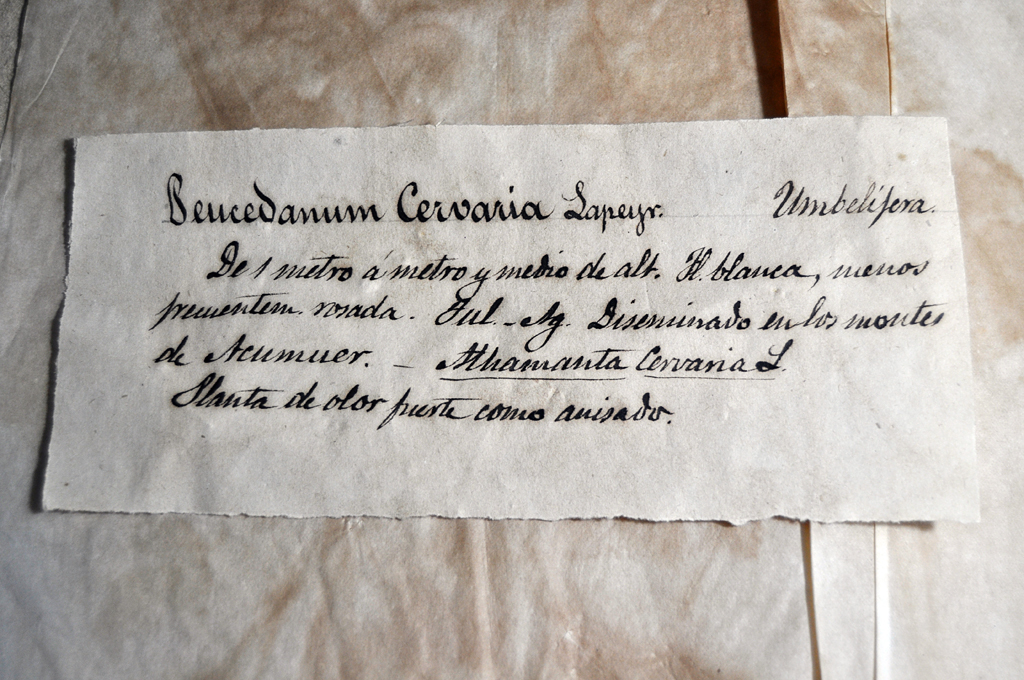 Peucedanum Cervaria Lapeyr. Umbelifera.
De 1 metro á metro y medio de alt. Fl. blanca, menos
frecuentem. rosada. Jul. - Ag. Diseminado en los montes
de Acumuer. - Athamanta Cervaria L.
Planta de olor fuerte como anisado.